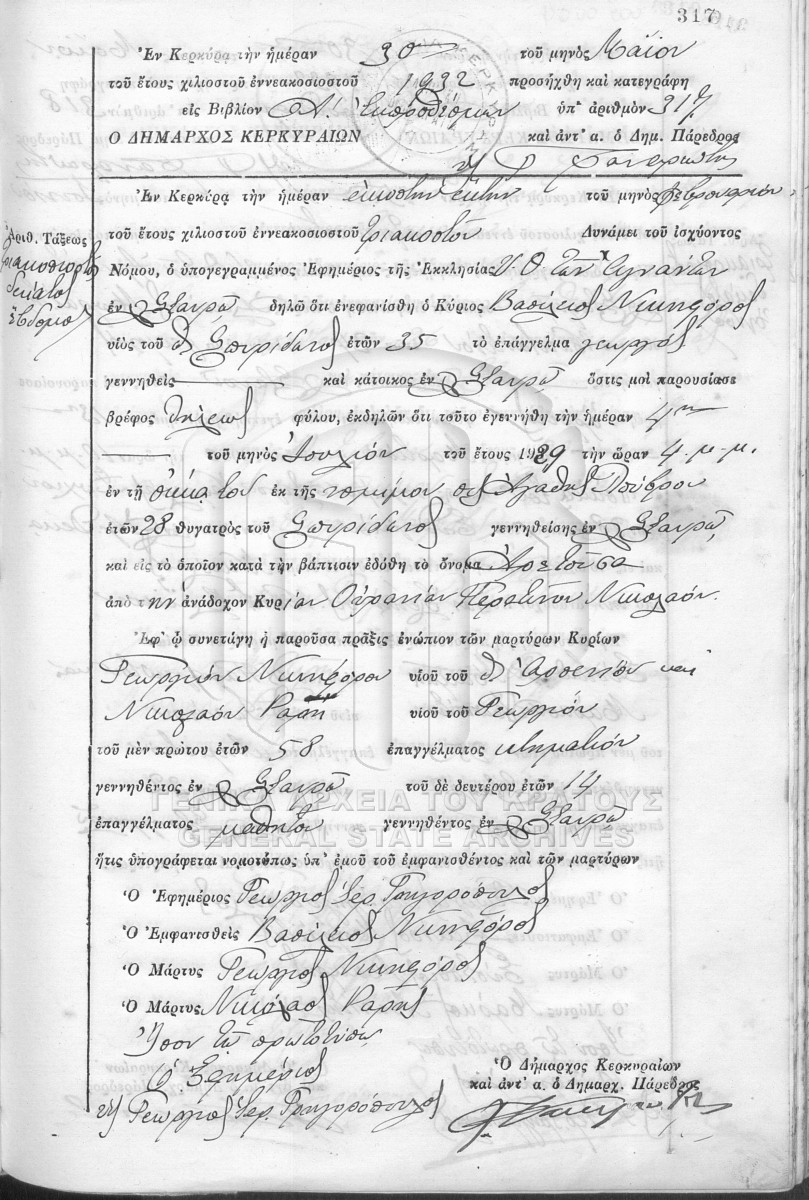 317
Ἐν Κερκύρᾳ τὴν ἡμέραν 30 τοῦ μηνὸς Μαΐου
τοῦ ἔτους χιλιοστοῦ ἐννεακοσιοστοῦ 1932 προσήχθη καὶ κατεγράφη
εἰς Βιβλίον Α. Ἐκπροθέσμων ὑπ' ἀριθμὸν 317
Ο ΔΗΜΑΡΧΟΣ ΚΕΡΚΥΡΑΙΩΝ καὶ ἀντ' α. ὁ Δημ. Πάρεδρος
Ἐν Κερκύρᾳ τὴν ἡμέραν εἰκοστὴν ἕκτην τοῦ μηνὸς Φεβρουαρίου
Ἀριθ. Τάξεως
τριακοσιοστὸς
δέκατος
ἕβδομος
τοῦ ἔτους χιλιοστοῦ ἐννεακοσιοστοῦ τριακοστοῦ Δυνάμει τοῦ ἰσχύοντος
Νόμου, ὁ ὑπογεγραμμένος Ἐφημέριος τῆς Ἐκκλησίας Υ. Θ. τῶν
ἐν Σταυρῷ δηλῶ ὅτι ἐνεφανίσθη ὁ Κύριος Βασίλειος Νικηφόρος
υἱὸς τοῦ Σπυρίδωνος ἐτῶν 35 τὸ ἐπάγγελμα γεωργὸς
γεννηθεὶς καὶ κάτοικος ἐν Σταυρῷ ὅστις μοὶ παρουσίασε
βρέφος θήλεως φύλου, ἐκδηλῶν ὅτι τοῦτο ἐγεννήθη τὴν ἡμέραν 4ην
τοῦ μηνὸς Ἰουλίου τοῦ ἔτους 1929 τὴν ὥραν 4 μ.μ.
ἐν τῇ οἰκίᾳ του ἐκ τῆς νομίμου συζ Ἀγαθῆς
ἐτῶν 28 θυγατρὸς τοῦ Σπυρίδωνος γεννηθείσης ἐν Σταυρῷ
καὶ εἰς τὸ ὁποῖον κατὰ τὴν βάπτισιν ἐδόθη τὸ ὄνομα Ἀρετοῦσα
ἀπὸ τὴν ἀνάδοχον Κυρίαν Οὐρανίαν Νικολάου.
Ἐφ' ᾧ συνετάγη ἡ παροῦσα πρᾶξις ἐνώπιον τῶν μαρτύρων Κυρίων
Γεωργίου Νικηφόρου υἱοῦ τοῦ Ἀρσενίου καὶ
Νικολάου Ραρῆ υἱοῦ τοῦ Γεωργίου
τοῦ μὲν πρώτου ἐτῶν 58 ἐπαγγέλματος κτηματίου
γεννηθέντος ἐν Σταυρῷ τοῦ δὲ δευτέρου ἐτῶν 14
ΓΕΝΙΚΑ ΑΡΧΕΙΑ ΤΟΥ ΚΡΑΤΟΥΣ
ἐπαγγέλματος μαθητοῦ γεννηθέντος ἐν Σταυρῷ
GENERAL STATE ARCHIVES
ἥτις ὑπογράφεται νομοτύπως ὑπ' ἐμοῦ τοῦ ἐμφανισθέντος καὶ τῶν μαρτύρων
Ὁ Ἐφημέριος Γεώργιος Ἱερ. Γρηγορόπουλος
Ὁ Ἐμφανισθεὶς Βασίλειος Νικηφόρος
Ὁ Μάρτυς Γεώργιος Νικηφόρος
Ὁ Μάρτυς Νικόλαος Ραρῆς
Ἴσον τῷ πρωτοτύπῳ
Ὁ Ἐφημέριος
Γεώργιος Ἱερ. Γρηγορόπουλος
Ὁ Δήμαρχος Κερκυραίων
καὶ ἀντ' α. ὁ Δημαρχ. Πάρεδρος